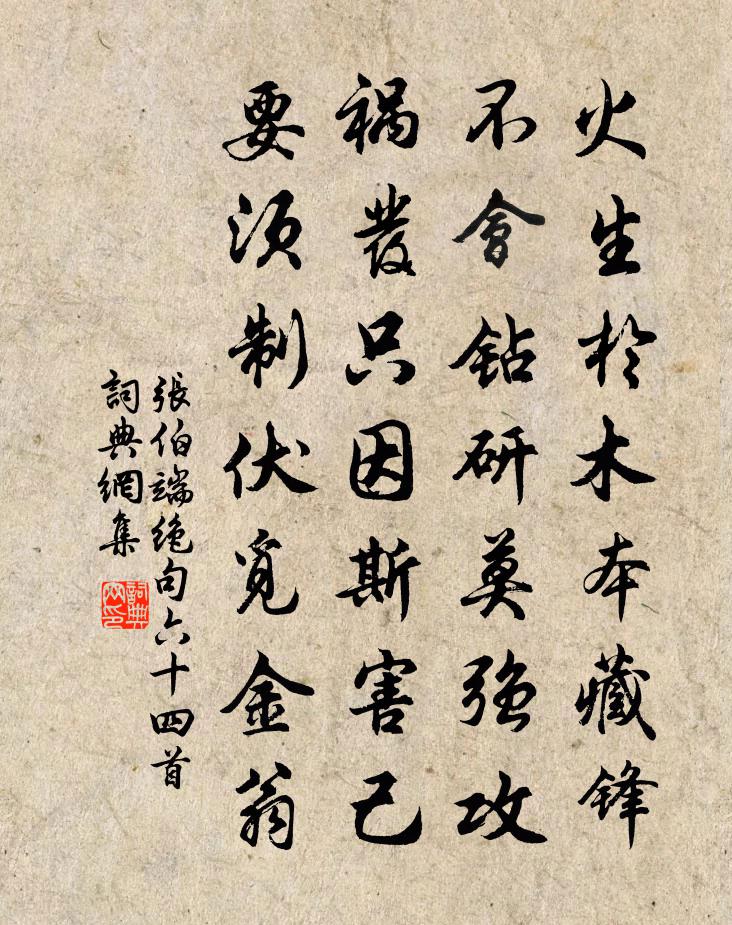 火生於木本藏锋
不會钻研莫強攻
禍發只因斯害己
要須制伏覓金翁
張伯端絶句六十四首
詞典網集
詞典網印